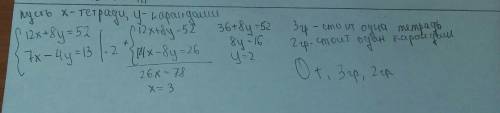 пусть x-тетради, y-карандаши
{12x+8y=52
7x-4y=13 |·2
+{12x+8y=52
14x-8y=26
26x=78
x=3
36+8y=52
8y=16
y=2
3гр-стоит одна тетрадь
2гр-стоит один карандаш
От, 3гр, 2гр